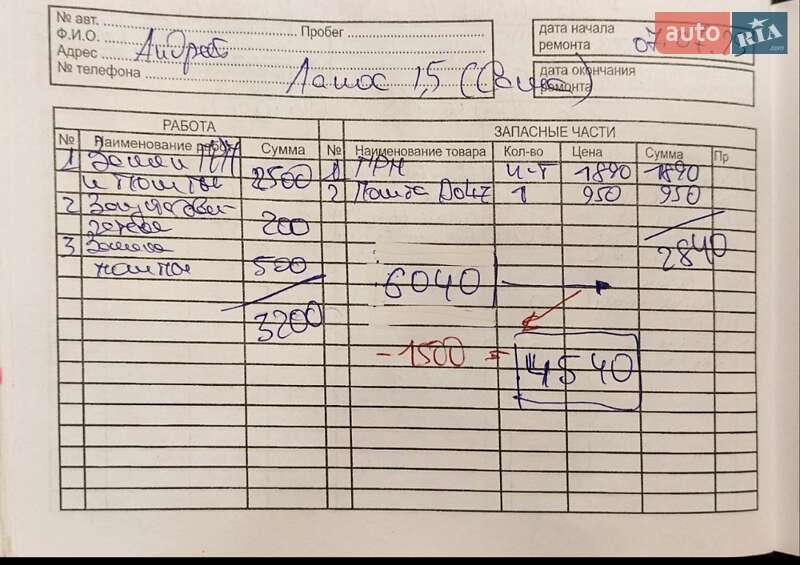 № авт. Пробег
Ф.И.О. Андрей
Адрес
№ телефона Ланос 1,5 (
дата начала ремонта 07.07.
дата окончания ремонта
auto RIA .com
РАБОТА ЗАПАСНЫЕ ЧАСТИ
№ Наименование работ Сумма № Наименование товара Кол-во Цена Сумма Пр
1 Замен ГРМ 1 ГРМ к-т 1890 1890
и помпы 2500 2 Помпа Dolz 1 950 950
2
200 2840
3 Замена
помпы 500 6040
3200
- 1500 = 4540